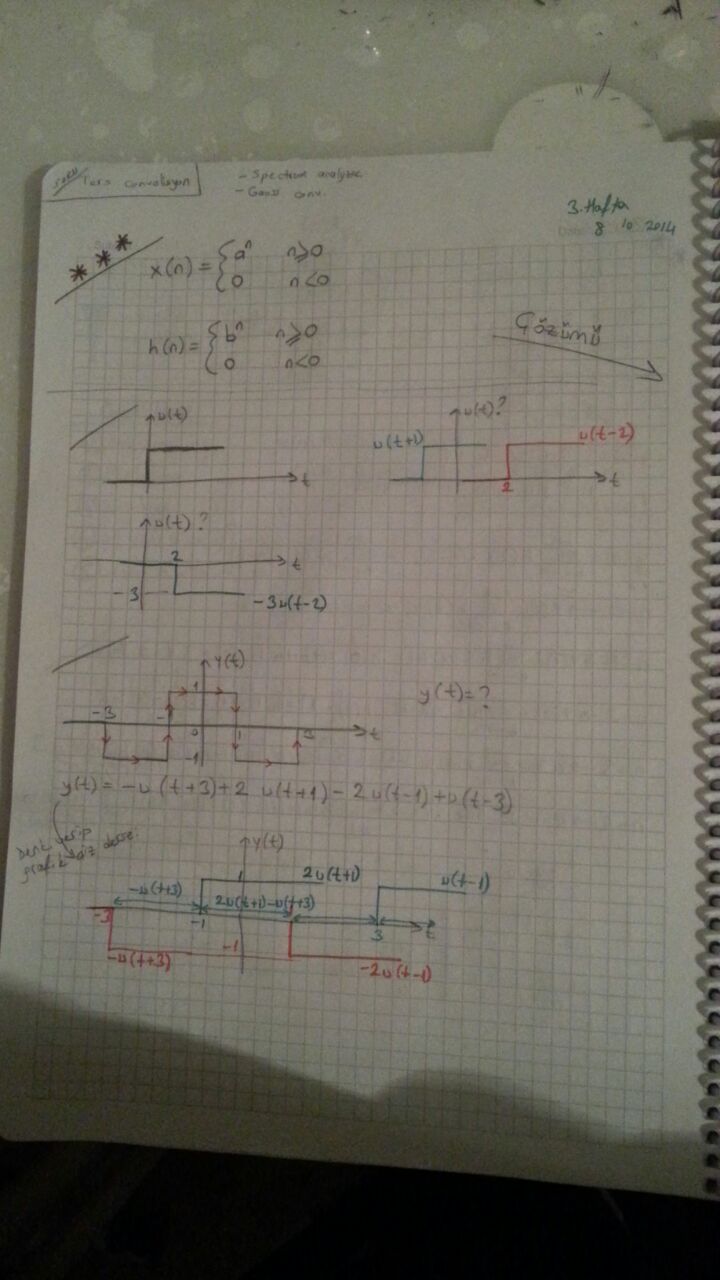 Ters convolisyon
- Spectrum analytic
- Gauss conv.
3. Hafta
8 10 2014
* * *
x(n) = { a^n n≥0
0 n<0
h(n) = { b^n n≥0
0 n<0
Çözümü
u(t)
t
u(t)?
u(t+1)
u(t-2)
2
t
u(t)?
2
t
-3
-3u(t-2)
y(t)
1
-3 -1 0 1 3 t
-1
y(t)=?
y(t) = -u(t+3)+2 u(t+1)-2u(t-1)+u(t-3)
grafik çiz derse.
y(t)
1
2u(t+1)
u(t-1)
-u(t+3)
2u(t+1)-u(t+3)
-3 -1 3 t
-1
-u(t+3)
-2u(t-1)